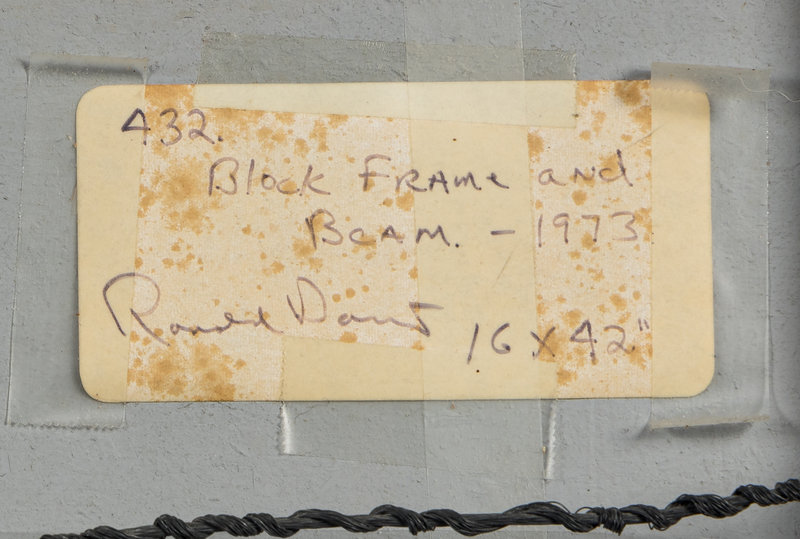 432.
Block Frame and
Beam. - 1973
Ronald Davis
16 x 42"